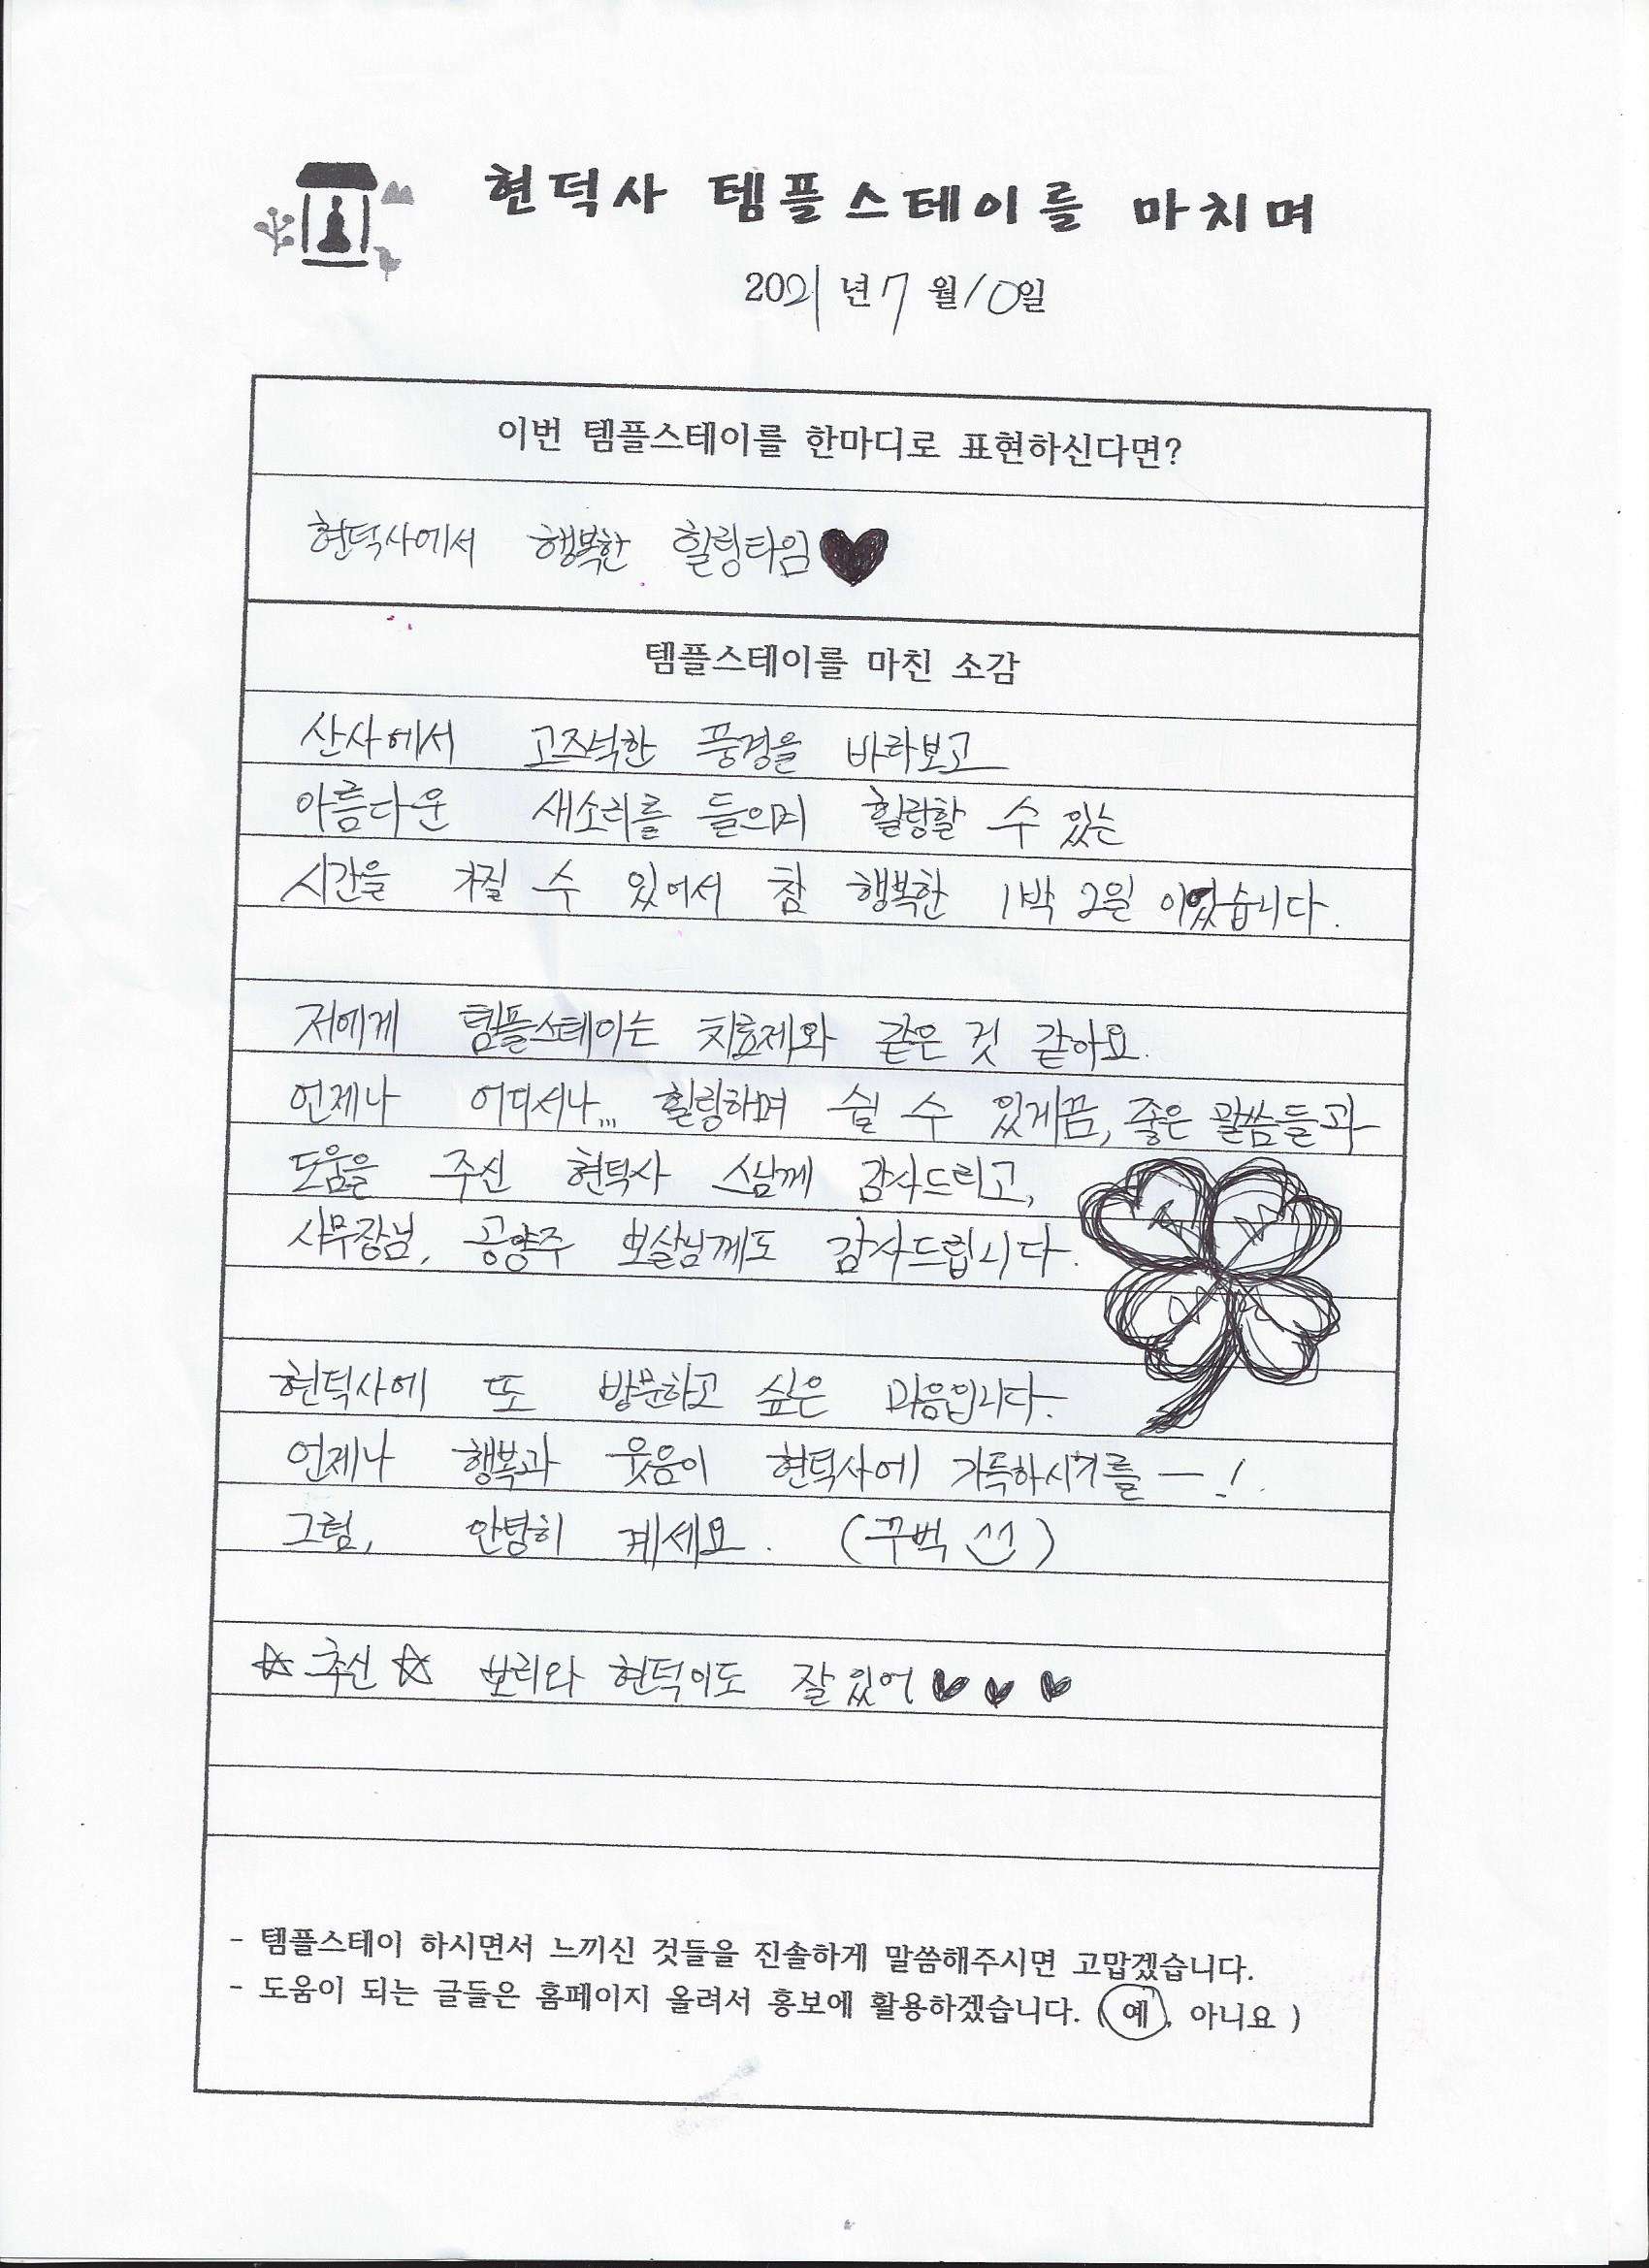 현덕사 템플스테이를 마치며
2021년 7월 10일
이번 템플스테이를 한마디로 표현하신다면?
현덕사에서 행복한 힐링타임♥
템플스테이를 마친 소감
산사에서 고즈넉한 풍경을 바라보고
아름다운 새소리를 들으며 힐링할 수 있는
시간을 가질 수 있어서 참 행복한 1박 2일 이었습니다.
저에게 템플스테이는 치료제와 같은 것 같아요.
언제나 어디서나... 힐링하며 쉴 수 있게끔, 좋은 말씀들과
도움을 주신 현덕사 스님께 감사드리고,
사무장님, 공양주 보살님께도 감사드립니다.
현덕사에 또 방문하고 싶은 마음입니다.
언제나 행복과 웃음이 현덕사에 가득하시기를 ㅡ!.
그럼, 안녕히 계세요. (꾸벅 ^^)
☆추신☆ 보리와 현덕이도 잘있어 ♥ ♥ ♥
- 템플스테이 하시면서 느끼신 것들을 진솔하게 말씀해주시면 고맙겠습니다.
- 도움이 되는 글들은 홈페이지 올려서 홍보에 활용하겠습니다. (예, 아니요)